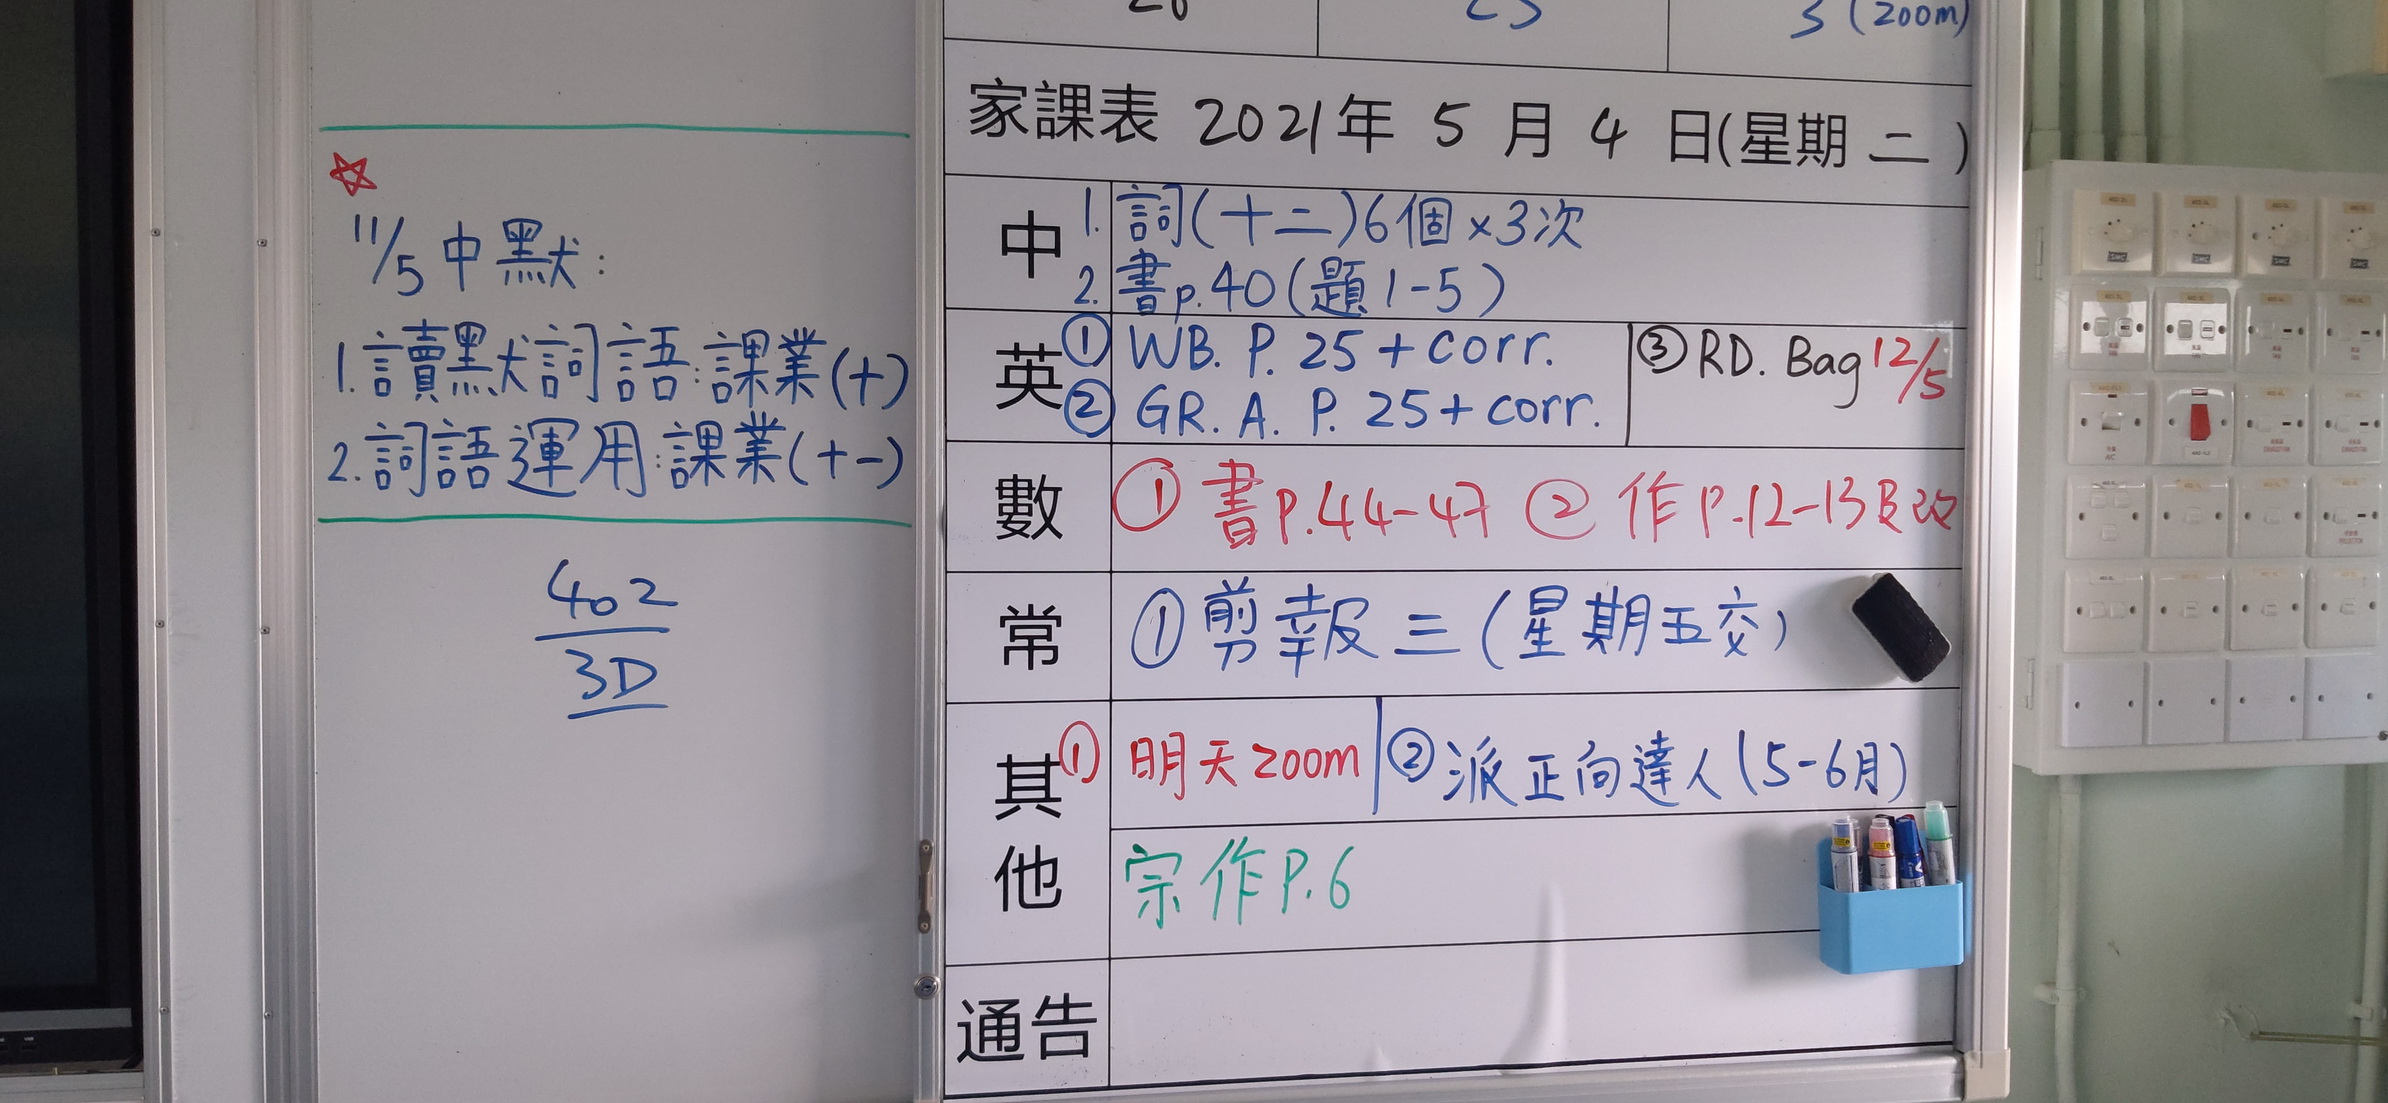 3 (zoom)
☆
11/5 中默:
1. 讀默詞語:課業(十)
2. 詞語運用:課業(十一)
402
3D
家課表 2021年 5 月 4 日(星期 二 )
中
1. 詞(十二)6個×3次
2. 書p.40(題1-5)
英
① WB. P. 25 + corr.
② GR. A. P. 25 + corr.
③ RD. Bag 12/5
數
① 書P.44-47 ② 作P.12-13及改
常
① 剪報三(星期五交)
其他
① 明天zoom
② 派正向達人(5-6月)
宗作P.6
通告